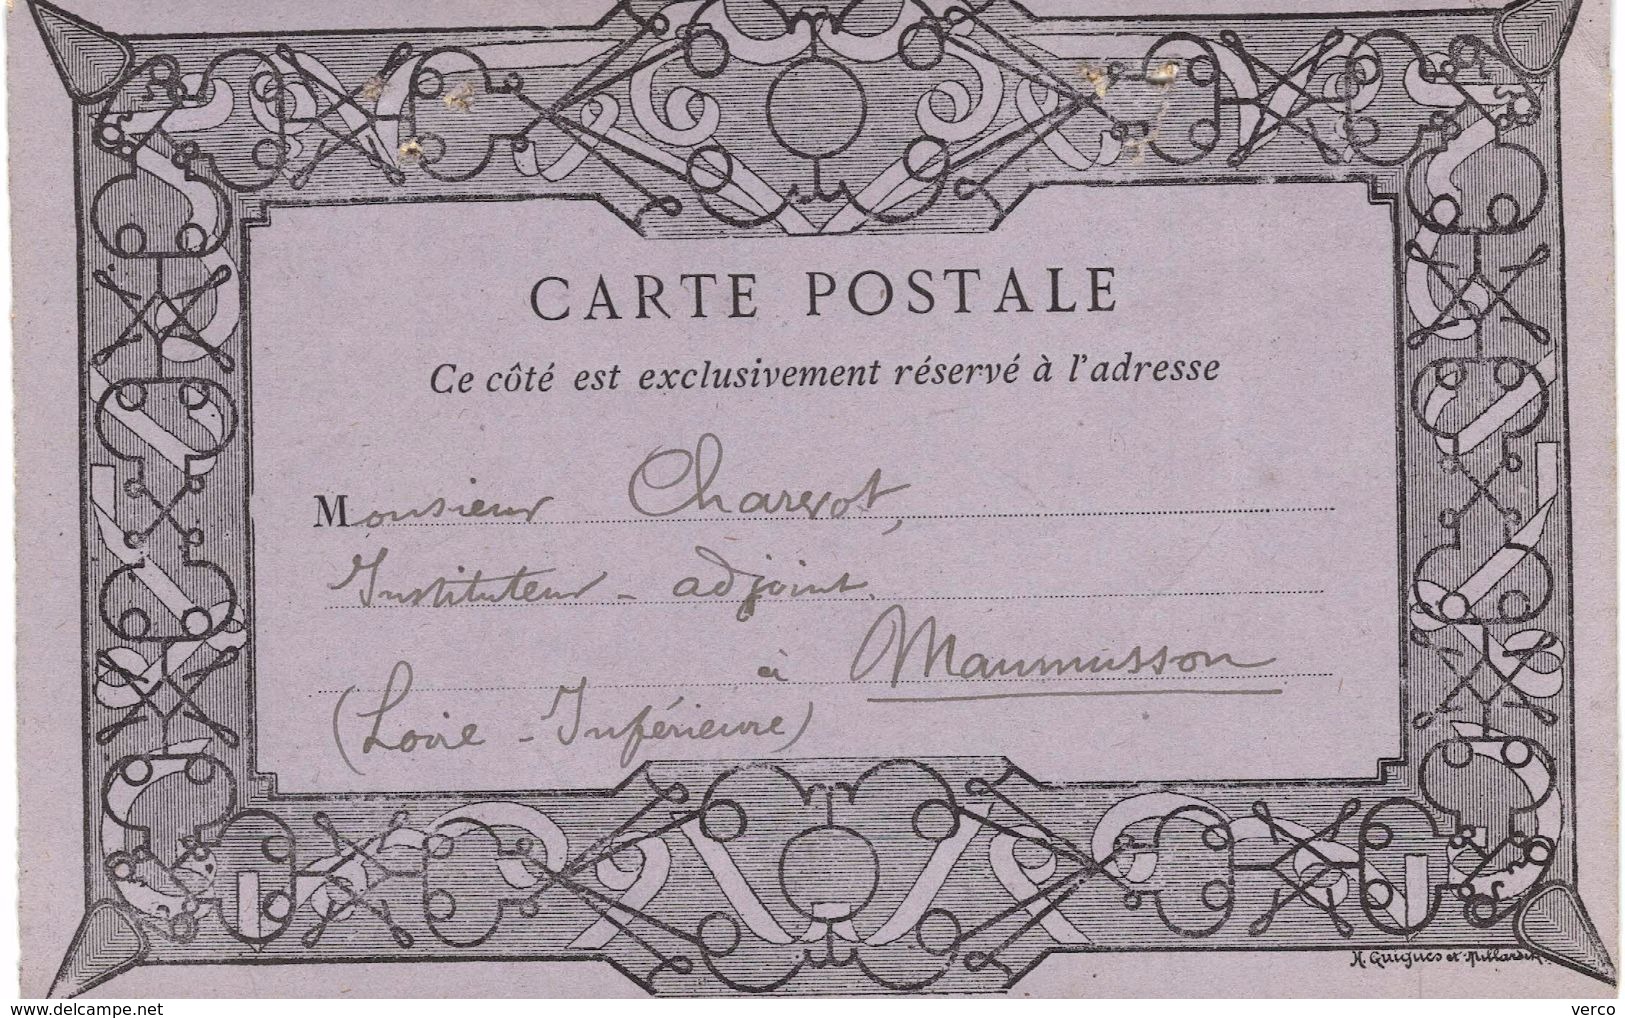 CARTE POSTALE
Ce côté est exclusivement réservé à l'adresse
Monsieur Chargot,
Instituteur - adjoint.
à Maumusson
(Loire - Inférieure)
© www.delcampe.net
verco